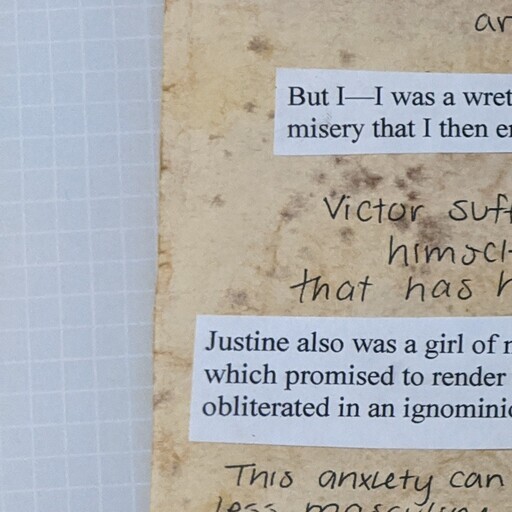 ar
But I—I was a wret
misery that I then e
Victor suff
himsel
that has h
Justine also was a girl of
which promised to render
obliterated in an ignomini
This anxiety can
less masculine